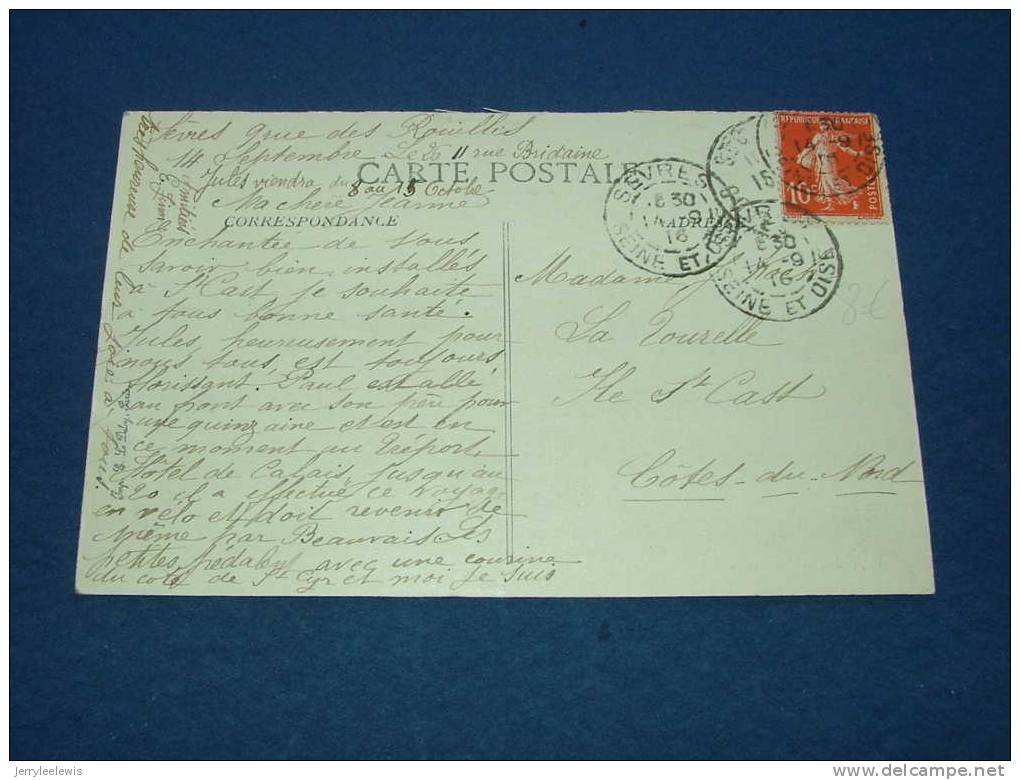 Sèvres 9 rue des Rouillis
14 Septembre 11 rue Bridaine
CARTE POSTALE
Jules viendra du 8 au 15 Octobre
Ma chère Jeanne
CORRESPONDANCE
Enchantée de vous
savoir bien installés
à St Cast je souhaite
à tous bonne santé.
Jules, heureusement pour
nous tous, est toujours
florissant Paul est allé
au pont avec son père pour
une quinzaine et est en
ce moment au Tréport,
Hôtel de Calais, jusqu'au
20 il a effectué ce voyage
en vélo et doit revenir de
même par Beauvais Les
petites pédalent avec une cousine
du coté de St Cyr et moi je suis
bien heureuse de leur joie à tous.
Amitiés
REPUBLIQUE FRANÇAISE
10
POSTES
SEVRES
8 30
14 -9
16
SEINE ET OISE
SEVRES
8 30
14 -9
16
SEINE ET OISE
Madame
La Tourelle
Ile St Cast
Côtes-du-Nord
8€
jerryleelewis
http://www.delcampe.net